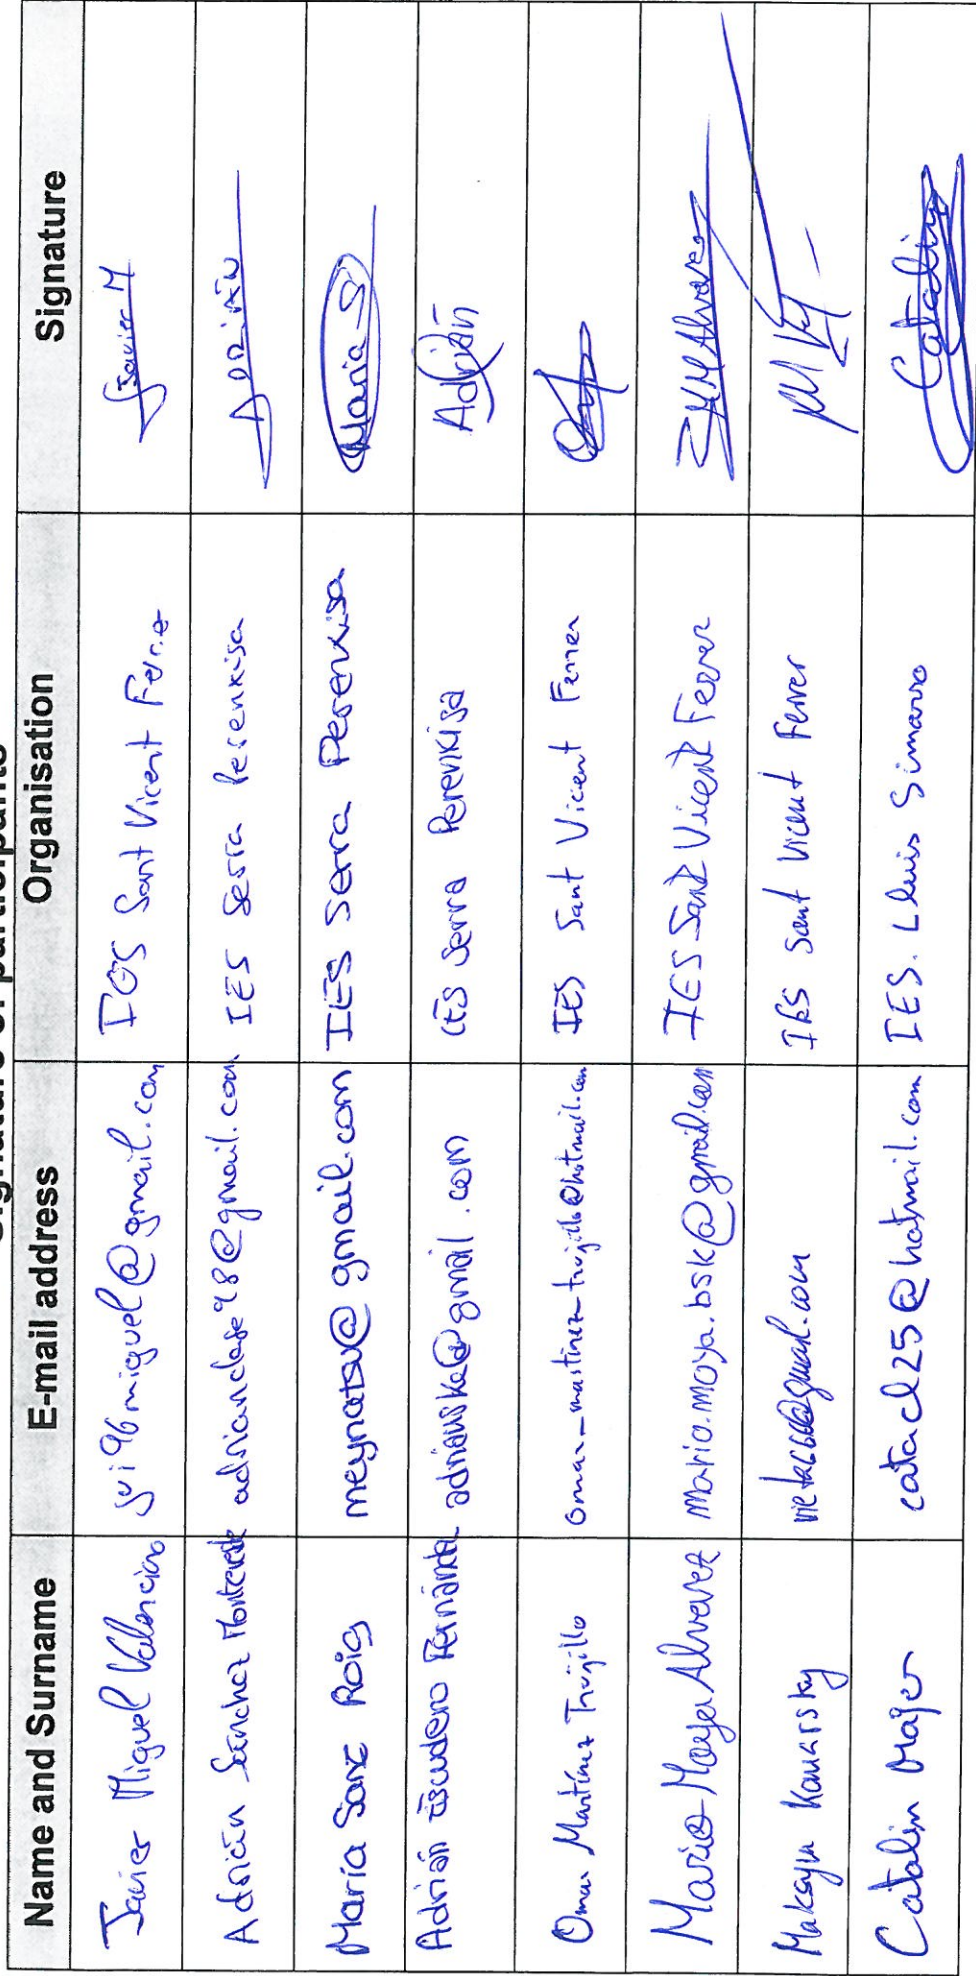 Signature of participants
Name and Surname E-mail address Organisation Signature
Javier Miguel Valenciano jvi96miguel@gmail.com IES Sant Vicent Ferrer Javier M
Adrián Sánchez Monteverde adrianclase98@gmail.com IES Serra Perenxisa ADRIÁN
María Sanz Roig meynatsu@gmail.com IES Serra Perenxisa María S
Adrián Escudero Fernández adrianske@gmail.com IES Serra Perenxisa Adrián
Omar Martínez Trujillo omar_martinez_trujillo@hotmail.com IES Sant Vicent Ferrer
Mario Moya Alvarez mario.moya.bsk@gmail.com IES Sant Vicent Ferrer MM Alvarez
Maksym Kanarsky IES Sant Vicent Ferrer
Catalin Majer catacl25@hotmail.com IES. Lluis Simarro Catalin